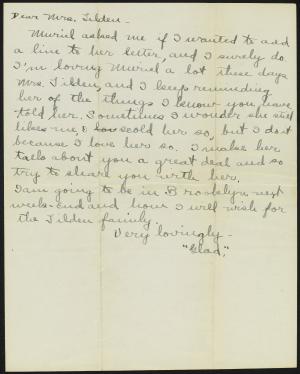 Dear Mrs. Tilden -
Muriel asked me if I wanted to add
a line to her letter, and I surely do
I'm loving Muriel a lot these days
Mrs. Tilden, and I keep reminding
her of the things I know you have
told her. Sometimes I wonder she still
likes me, I scold her so, but I do it
because I love her so. I make her
talk about you a great deal and so
try to share you with her.
I am going to be in Brooklyn next
week-end and how I will wish for
the Tilden family.
Very lovingly -
"Glad."